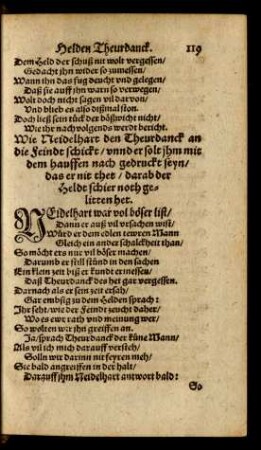 Helden Theurdanck. 119
Dem Held der schuß nit wolt vergessen/
Gedacht jhn wider so zumessen.
Wann jhn das fug deucht vnd gelegen/
Daß sie auff jhn warn so verwegen/
Wolt doch nicht sagen vil darvon/
Vnd blieb es also dißmal ston.
Doch ließ sein tück der bößwicht nicht/
Wie jhr nachvolgends werdt bericht.
Wie Neidelhart den Theurdanck an
die Feindt schickt/ vnnder solt jhm mit
dem hauffen nach gedruckt seyn/
das er nit thet/ darab der
Heldt schier noth ge-
litten het.
NEidelhart war vol böser list/
Dann er auß vil vrsachen wist/
Würd er dem edlen tewren Mann
Gleich ein ander schalckheit than/
So möcht ers nur vil böser machen/
Darumb er still stünd in den sachen
Ein klein zeit biß er kundt ermessen/
Daß Theurdanck des het gar vergessen.
Darnach als er sein zeit ersah/
Gar embsig zu dem Helden sprach:
Jhr seht/ wie der Feindt zeucht daher/
Wo es ewr rath vnd meinung wer/
So wolten wir jhn greiffen an.
Ja/ sprach Theurdanck der küne Mann/
Als vil ich mich darauff versteh/
Solln wir darinn nit feyren meh/
Sie bald angreiffen in der halt/
Darauff jhm Neidelhart antwort bald:
So